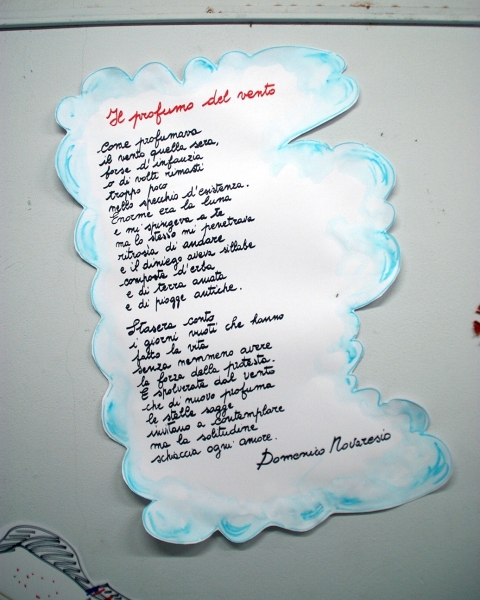 Il profumo del vento
Come profumava
il vento quella sera,
forse d'infanzia
o di volti rimasti
troppo poco
nello specchio d'esistenza.
Enorme era la luna
e mi spingeva a te
ma lo stesso mi penetrava
ritrosia di andare
e il diniego aveva sillabe
composte d'erba
e di terra amata
e di piogge antiche.
Stasera conto
i giorni vuoti che hanno
fatto la vita
senza nemmeno avere
la forza della protesta.
E spolverate dal vento
che di nuovo profuma
le stelle sagge
invitano a contemplare
ma la solitudine
schiaccia ogni amore.
Domenico Novaresio